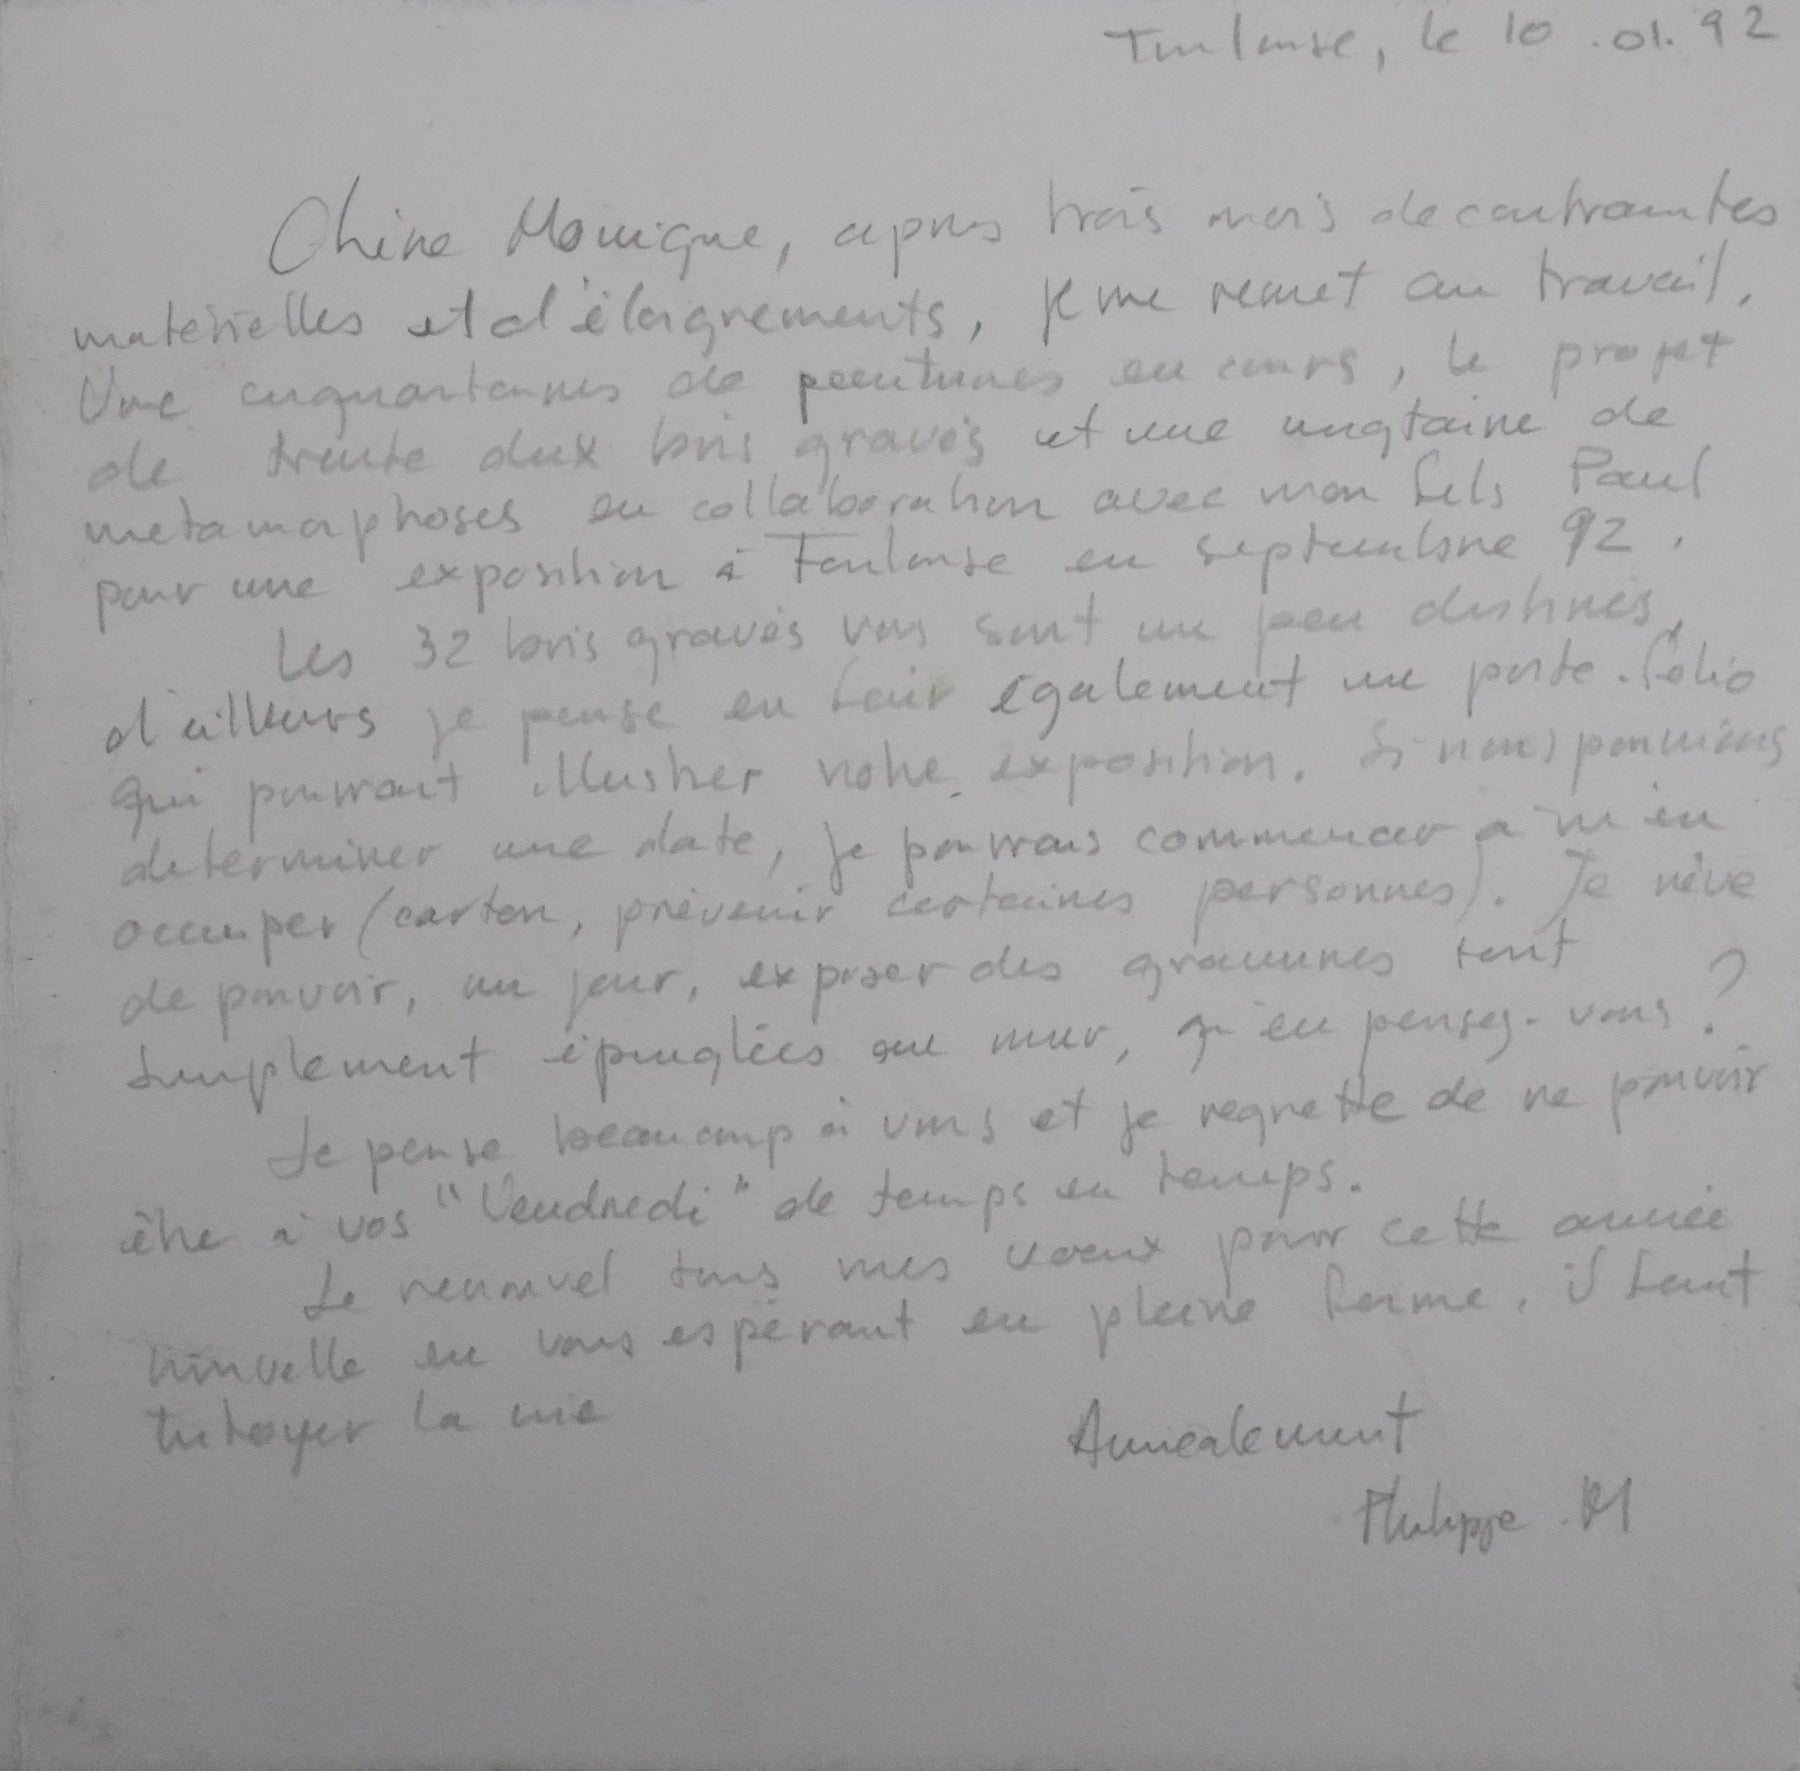 Toulouse, le 10.01.92
Chère Monique, après trois mois de contraintes
matérielles et d'éloignements, je me remet au travail.
Une cinquantaines de peintures en cours, le projet
de trente deux bois gravés et une vingtaine de
metamorphoses en collaboration avec mon fils Paul
pour une exposition à Toulouse en septembre 92.
Les 32 bois gravés vous sont un peu destinés,
d'ailleurs je pense en fair également un porte-folio
qui pourrait illustrer notre exposition. Si nous pouvions
determiner une date, je pourrais commencer a m'en
occuper (carton, prévenir certaines personnes). Je rêve
de pouvoir, un jour, exposer des gravures tout
simplement épinglées au mur, qu'en pensez-vous ?
Je pense beaucoup à vous et je regrette de ne pouvoir
être à vos "Vendredi" de temps en temps.
Je renouvel tous mes voeux pour cette année
nouvelle en vous espérant en pleine forme, il faut
tutoyer la vie
Amicalement
Philippe. M